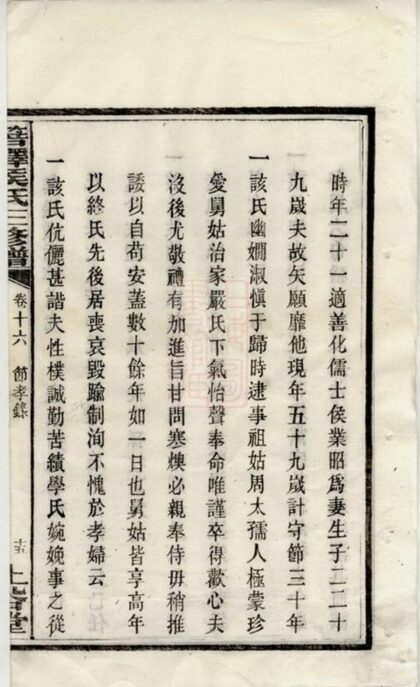 時年二十一適善化儒士侯業昭爲妻生子二二十
九歲夫故矢願靡他現年五十九歲計守節三十年
一該氏幽嫺淑愼于歸時逮事祖姑周太孺人極蒙珍
愛舅姑治家嚴氏下氣怡聲奉命唯謹卒得歡心夫
沒後尤敬禮有加進旨甘問寒燠必親奉侍毋稍推
諉以自苟安蓋數十餘年如一日也舅姑皆享高年
以終氏先後居喪哀毀踰制洵不愧於孝婦云
一該氏伉儷甚諧夫性樸誠勤苦績學氏婉娩事之從
侯氏三修譜
卷十六
節孝錄
十五
上谷堂